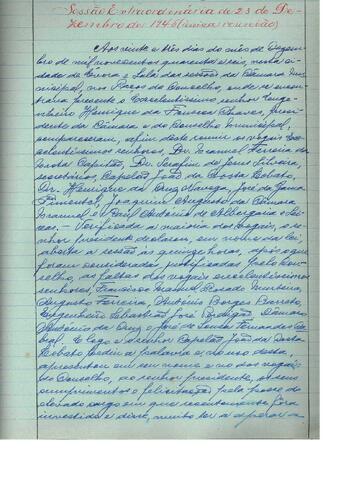 Sessão Extraordinária de 23 de De-
zembro de 1946 (única reunião)
Aos vinte e três dias do mês de Dezem-
bro de mil novecentos quarenta e seis, nesta ci-
dade de Évora e Sala das sessões da Câmara Mu-
nicipal, nos Paços do Concelho, onde se encon-
trava presente o Excelentíssimo senhor Enge-
nheiro Henrique da Fonseca Chaves, presi-
dente da Câmara e do Conselho Municipal,
compareceram, além deste, como vogais os ex-
celentíssimos senhores, Dr. Manuel Ferreira da
Costa Capitão, Dr. Serafim de Jesus Silveira,
secretários, Capelão João da Costa Lobato,
Dr. Henrique da Cruz Navega, José da Gama
Pimentel, Joaquim Augusto da Câmara
Manuel e Raúl António de Albergaria e Sei-
xas. — Verificada a maioria dos vogais, o se-
nhor presidente declarou, em nome da lei,
aberta a sessão às quinze horas, após o que
foram consideradas justificadas pelo Con-
selho, as faltas dos vogais excelentíssimos
senhores, Francisco Manuel Rosado
Augusto Ferreira, António Borges Barreto,
Engenheiro Sebastião José Perdigão,
António da Cruz e José de Sousa Fernandes
E logo o senhor Capelão João da Costa
Lobato pediu a palavra e, no uso dela,
apresentou em seu nome e no dos vogais
do Conselho, ao senhor presidente, os seus
cumprimentos e felicitações pela posse do
elevado cargo em que recentemente fôra
investido e disse, muito ter a esperar a